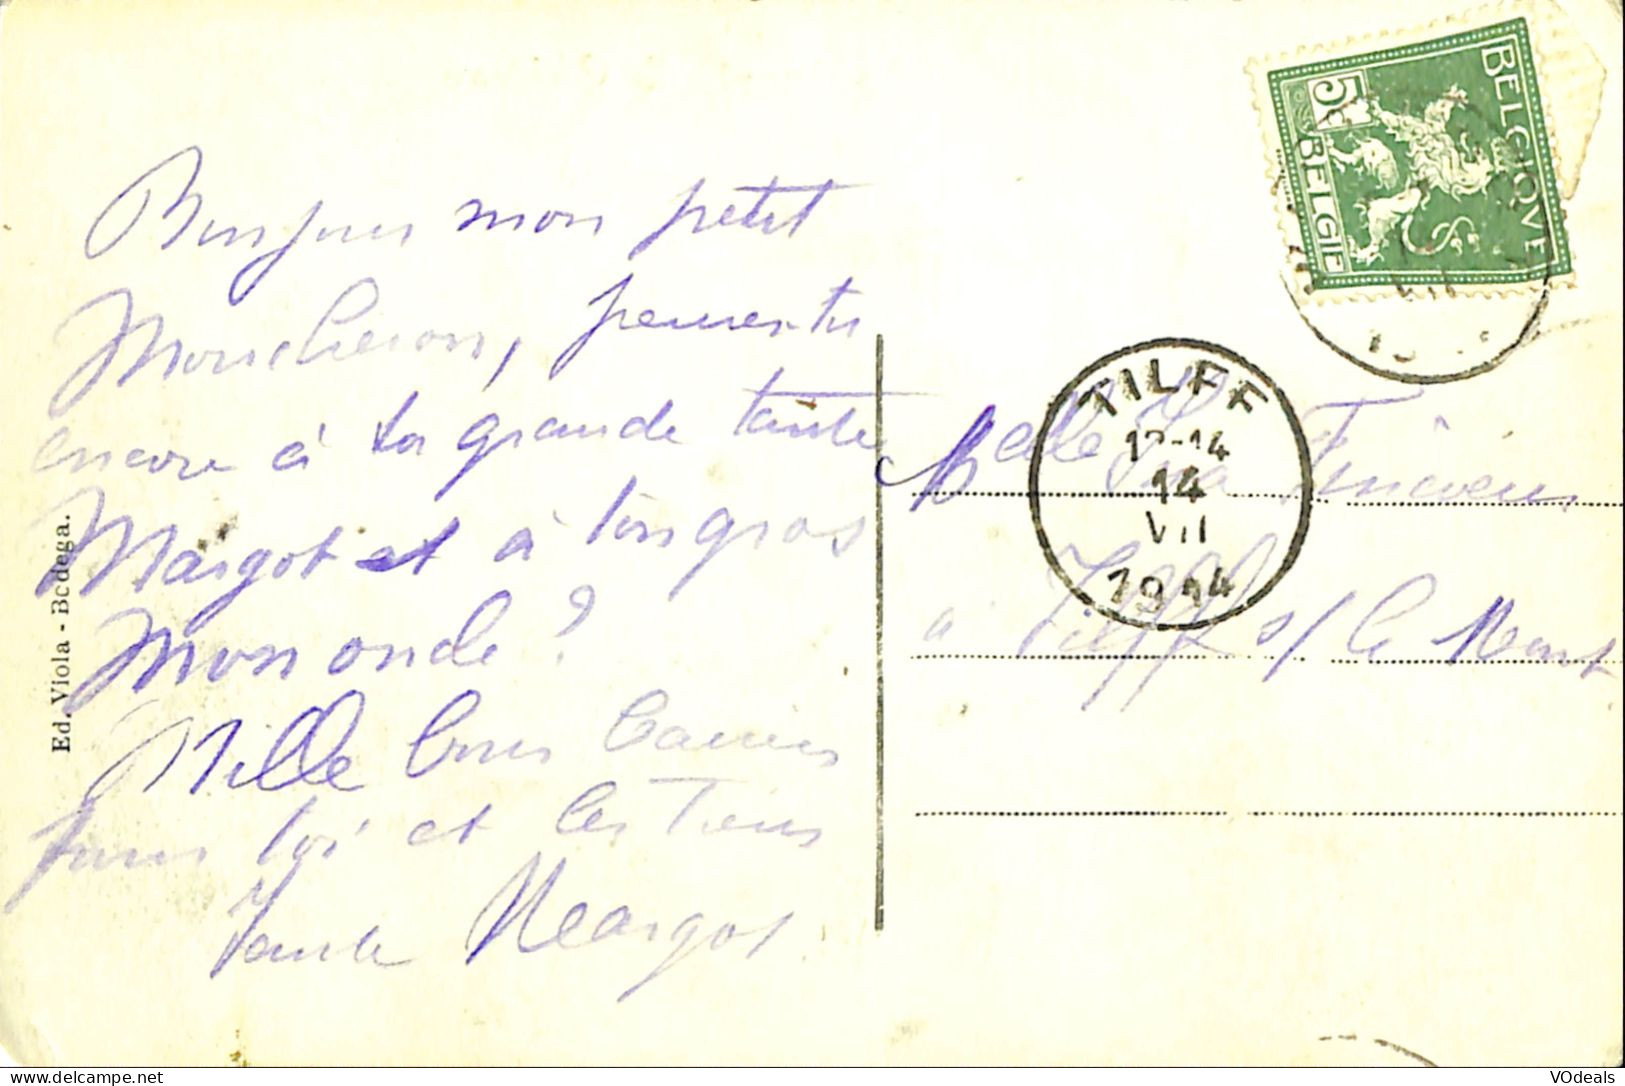 Bonjour mon petit
Moucheron, penses-tu
encore à ta grande tante
Margot et à ton gros
Mononcle?
Mille bons baisers
pour toi et les tiens
Tante Margot.
Ed. Viola - Bodega.
BELGIQVE
5
BELGIE
TILFF
12-14
14
VII
1914
Melle
à Tilff s/ le Mont
VOdeals